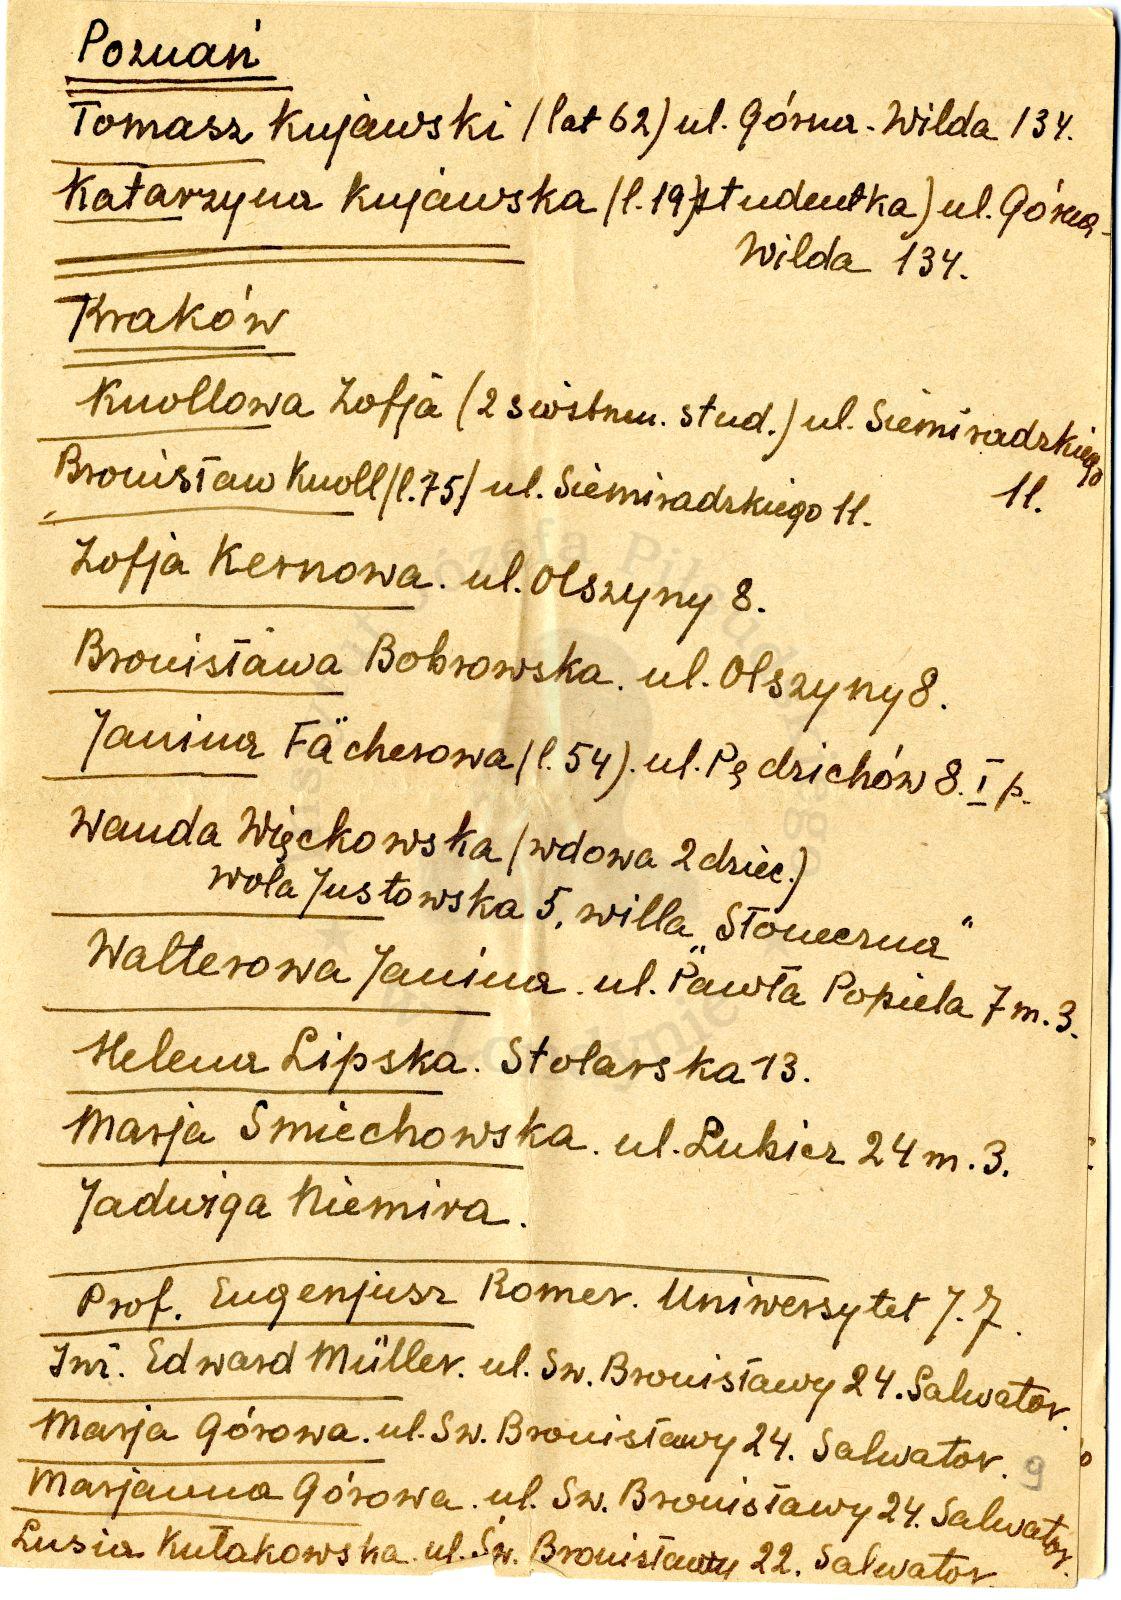 Poznań
Tomasz Kujawski (lat 62) ul. Górna-Wilda 134.
Katarzyna Kujawska (l.19)studentka) ul. Górna-
Wilda 134.
Kraków
Knollowa Zofja (2 stud.) ul. Siemiradzkiego
11.
Bronisław Knoll (l.75) ul. Siemiradzkiego 11.
Zofja Kernowa. ul. Olszyny 8.
Bronisława Bobrowska. ul. Olszyny 8.
Janina Fächerowa (l.54). ul. Pędzichów 8. I p.
Wanda Więckowska (wdowa 2 dziec.)
Wola Justowska 5, willa „Słoneczna"
Walterowa Janina. ul. Pawła Popiela 7 m. 3.
Helena Lipska. Stolarska 13.
Marja Smiechowska. ul. Lubicz 24 m. 3.
Jadwiga Niemira.
Prof. Eugenjusz Romer. Uniwersytet J. J.
Inż. Edward Müller. ul. Św. Bronisławy 24. Salwator.
Marja Górowa. ul. Św. Bronisławy 24. Salwator. 9
Marjanna Górowa. ul. Św. Bronisławy 24. Salwator.
Lusia Kułakowska. ul. Św. Bronisławy 22. Salwator.
Instytut Józefa Piłsudskiego
w Londynie